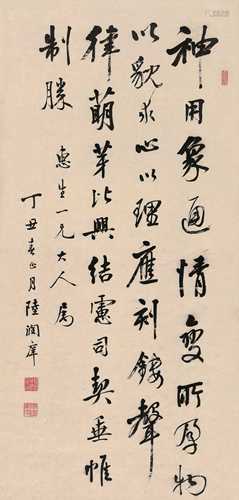 神用象通情变所孕物
以貌求心以理應刻鏤聲
律萌芽比興結慮司契垂帷
制勝
惠生一兄大人属
丁丑春正月陸潤庠